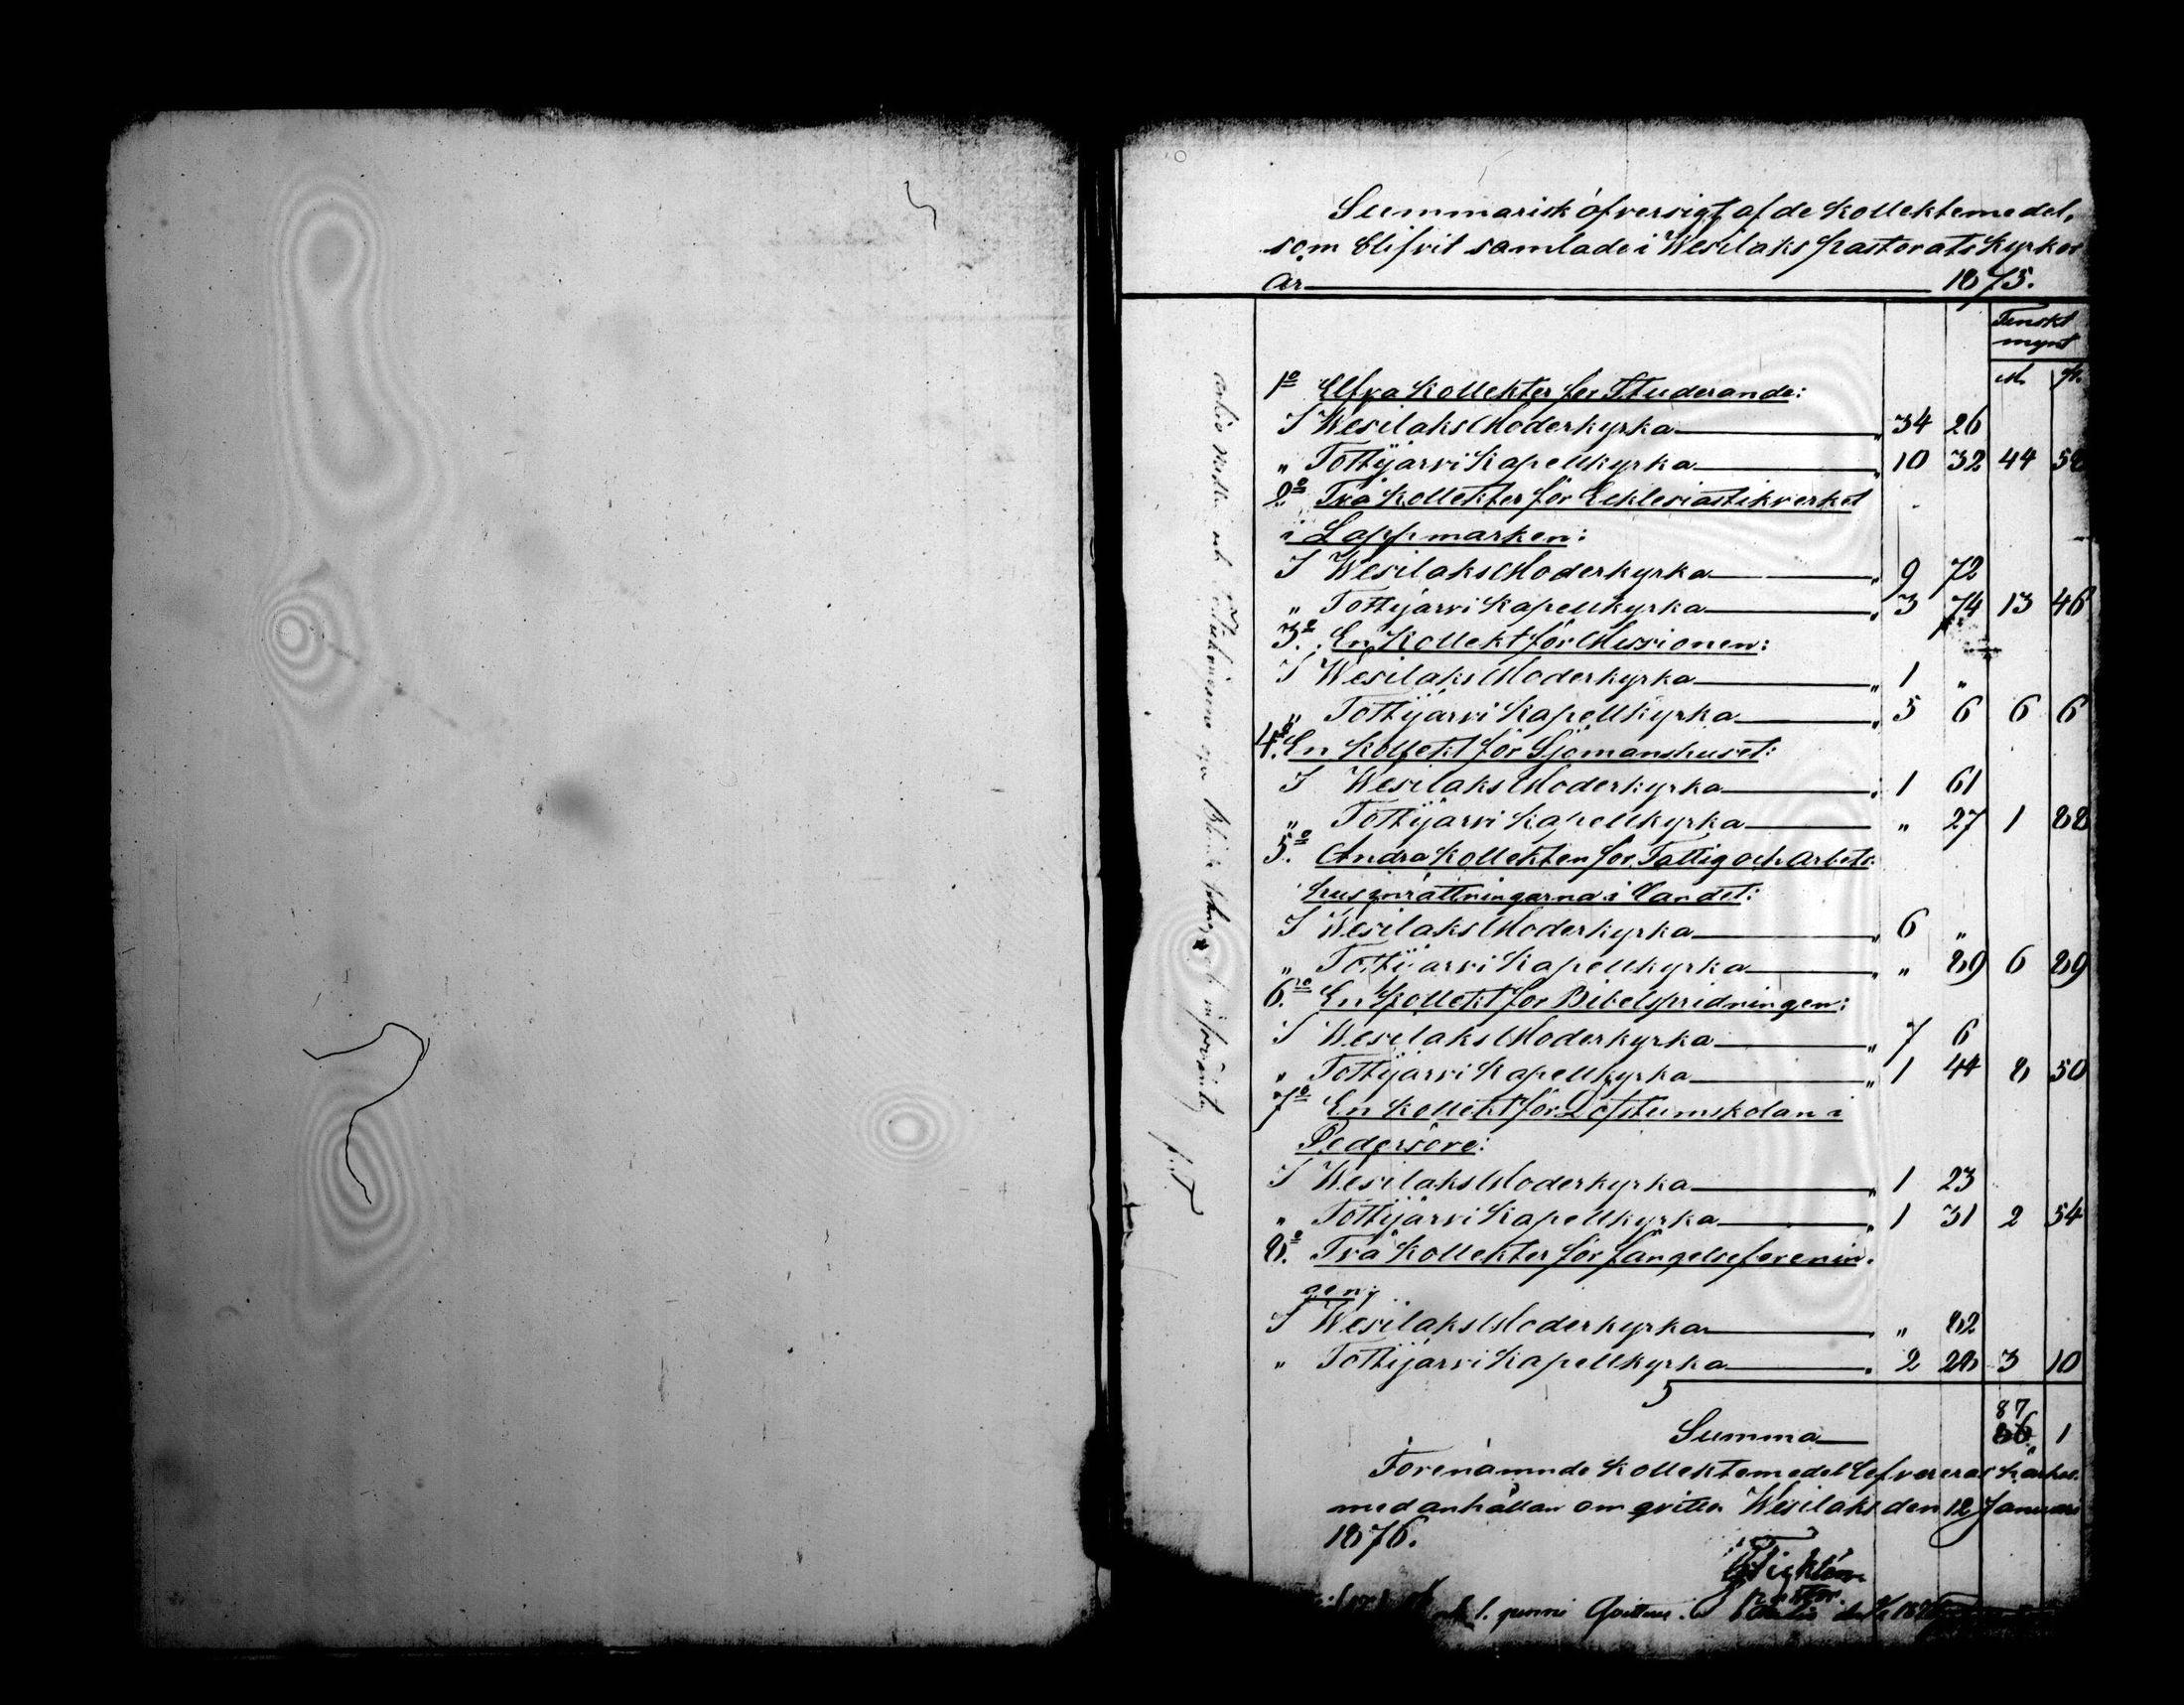 Summarisk öfversigt af de Kollektemedel,
som blifvit samlade i Wesilaks pastorats Kyrkor
År 1875.
Finskt
mynt
M. p.
1o Elfva Kollekter för Studerande:
I Wesilaks Moderkyrka „ 34 26
„ Tottijärvi Kapellkyrka „ 10 32 44 58
2o Två Kollekter för Ecklesiastikverket
i Lappmarken:
I Wesilaks Moderkyrka „ 9 72
„ Tottijärvi Kapellkyrka „ 3 74 13 46
3o. En Kollekt för Missionen:
I Wesilaks Moderkyrka „ 1 „
„ Tottijärvi Kapellkyrka „ 5 6 6 6
4o. En Kollekt för Sjömanshuset:
I Wesilaks Moderkyrka „ 1 61
„ Tottijärvi Kapellkyrka „ 27 1 88
5o. Andra Kollekten för Fattig och Arbets-
husinrättningarna i Landet:
I Wesilaks Moderkyrka „ 6 „
„ Tottijärvi Kapellkyrka „ „ 89 6 89
6o. En Kollekt för Bibelspridningen:
I Wesilaks Moderkyrka „ 7 6
„ Tottijärvi Kapellkyrka „ 1 44 8 50
7o En Kollekt för Döfstumskolan i
Pedersöre:
I Wesilaks Moderkyrka „ 1 23
„ Tottijärvi Kapellkyrka „ 1 31 2 54
8o. Två Kollekter för fångelseförenin-
gen:
I Wesilaks Moderkyrka „ „ 82
„ Tottijärvi Kapellkyrka „ 2 28 3 10
87
Summa 86 1
Förenämnde Kollektemedel lefvereras härhos
med anhållan om qvitto. Wesilaks den 12 Januari
1876.
Pastor.
1. penni Qvitteras